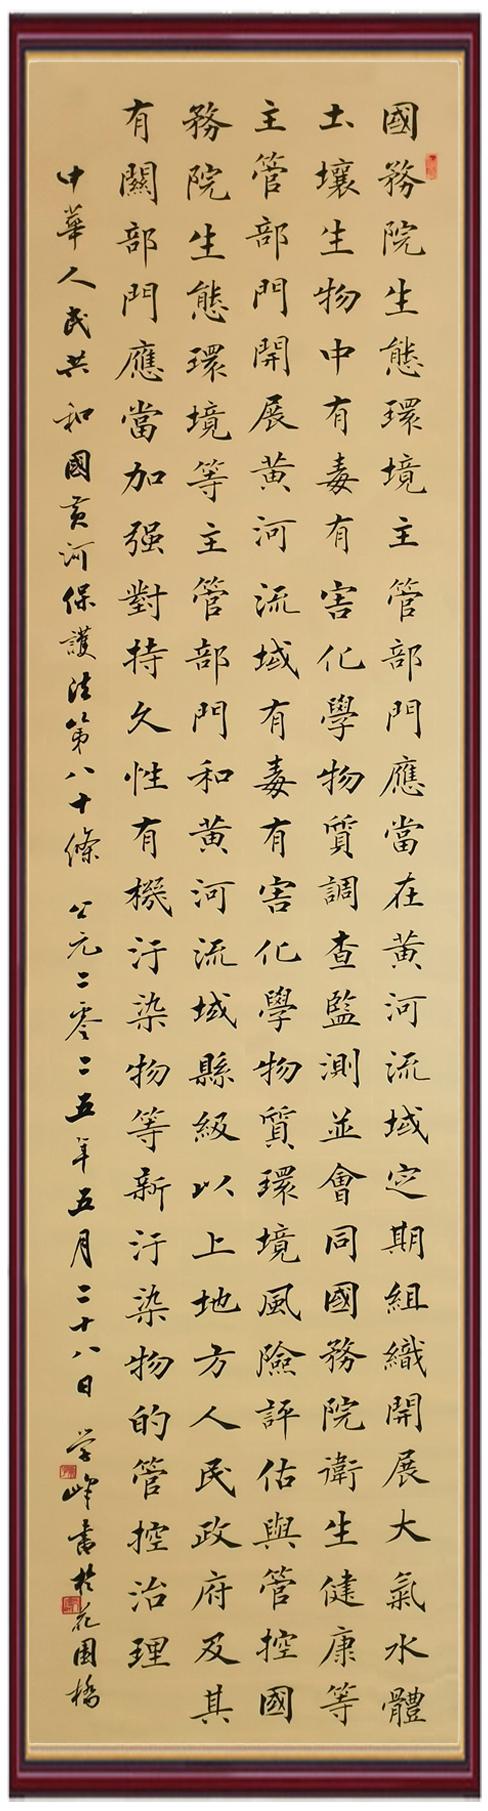 國務院生態環境主管部門應當在黃河流域定期組織開展大氣水體
土壤生物中有毒有害化學物質調查監測並會同國務院衛生健康等
主管部門開展黃河流域有毒有害化學物質環境風險評估與管控國
務院生態環境等主管部門和黃河流域縣級以上地方人民政府及其
有關部門應當加强對持久性有機汙染物等新汙染物的管控治理
中華人民共和國黃河保護法第八十條 公元二零二五年五月二十八日 学峰書於花園橋